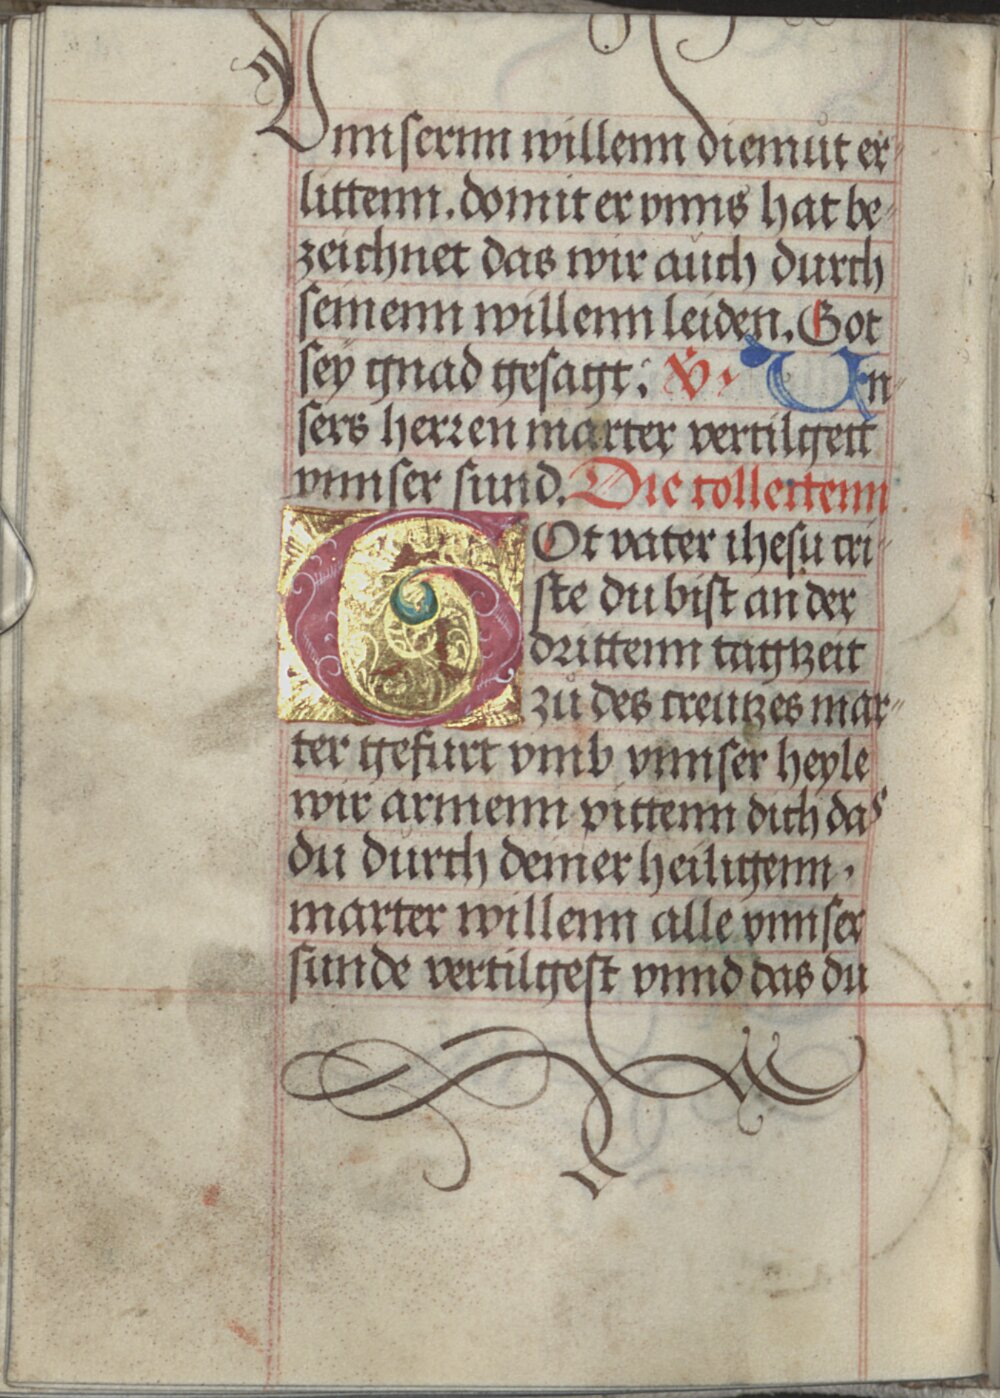 Vnnsernn willenn diemut er
littenn. domit er vnns hat be
zeichnet das wir auch durch
seinenn willenn leiden. Got
sey gnad gesagt: V. Un
sers herren marter vertilgett
vnnser sund. Die collectenn
GOt vater ihesu cri
ste du bist an der
drittenn tagtzeit
zů des creutzes mar
ter gefurt vmb vnnser heyle
wir armenn pittenn dich das
du durch deiner heiligenn
marter willenn alle vnnser
sunde vertilgest vnnd das du